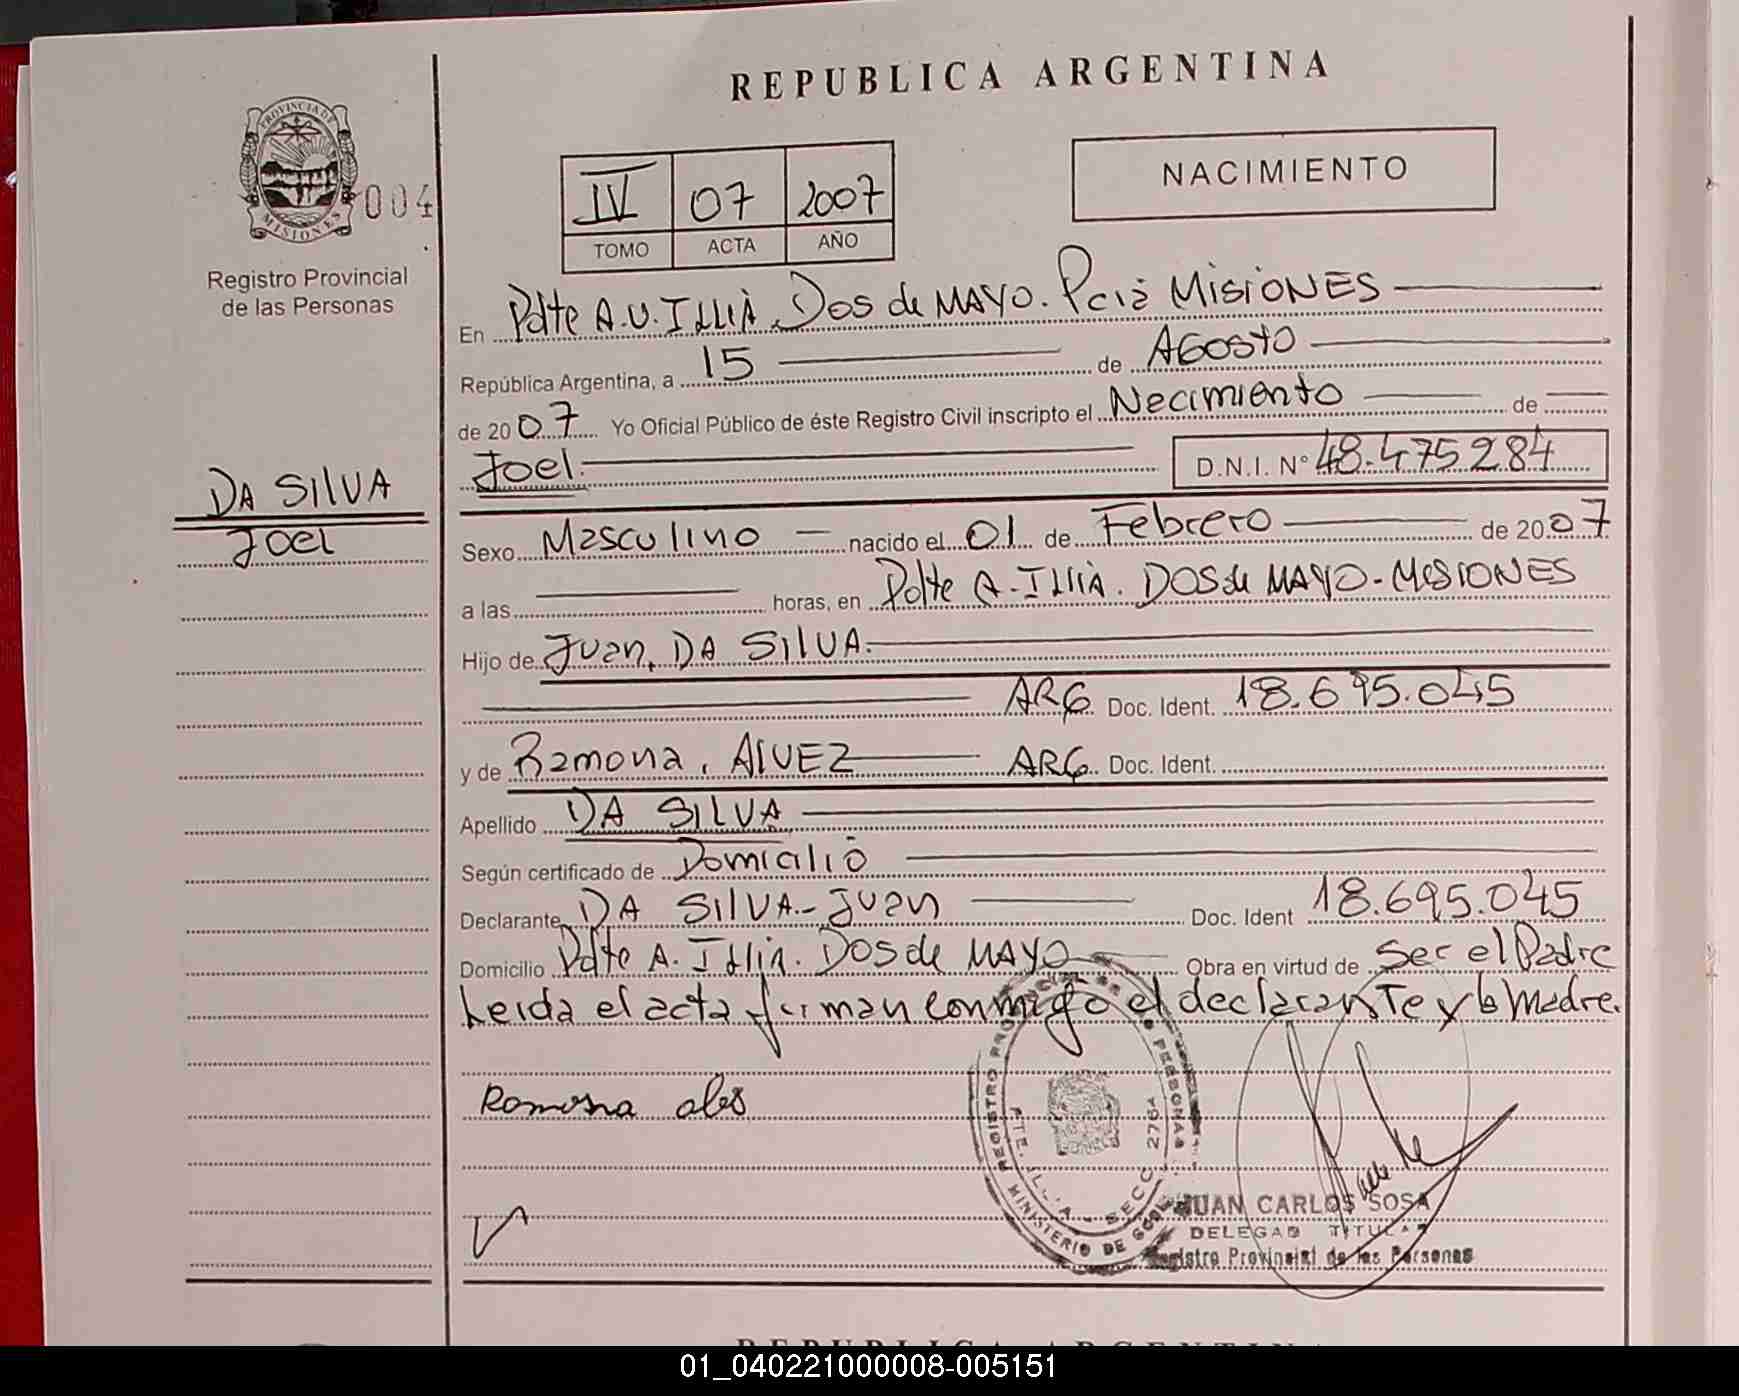 REPUBLICA ARGENTINA
PROVINCIA DE
MISIONES
004
Registro Provincial
de las Personas
IV 07 2007
TOMO ACTA AÑO
NACIMIENTO
En Pdte A.U. ILLIA, Dos de MAYO. Pciã MISIONES
República Argentina, a 15 de AGOSTO
de 2007 Yo Oficial Público de éste Registro Civil inscripto el Nacimiento de
Joel. D.N.I. N° 48.475284
DA SILVA
Joel
Sexo Masculino nacido el 01 de Febrero de 2007
a las horas, en Pdte A. ILLIA. DOS de MAYO-MISIONES
Hijo de Juan, DA SILVA.
ARG Doc. Ident. 18.695.045
y de Ramona, AlVEZ ARG Doc. Ident.
Apellido DA SILVA
Según certificado de Domicilio
Declarante DA SILVA-Juan Doc. Ident 18.695.045
Domicilio Pdte A. Illia. Dos de MAYO Obra en virtud de Ser el Padre
Leida el acta firman conmigo el declarante y la madre.
Ramona
REGISTRO PROVINCIAL DE PERSONAS
SECC. 2764
MINISTERIO DE
JUAN CARLOS SOSA
DELEGADO TITULAR
Registro Provincial de las Personas
REPUBLICA ARGENTINA
01_040221000008-005151